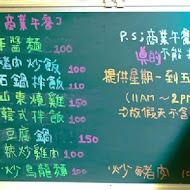 商業午餐
炸醬麵 100
豬肉炒飯 100
石鍋拌飯 110
山東燒雞 110
韓式拌飯 100
豆腐鍋 150
辣炒雞肉 100
炒烏龍麵 100
P.S:商業午
真的不能
提供星期一到五
(11AM~2PM
放假天不含
炒豬肉